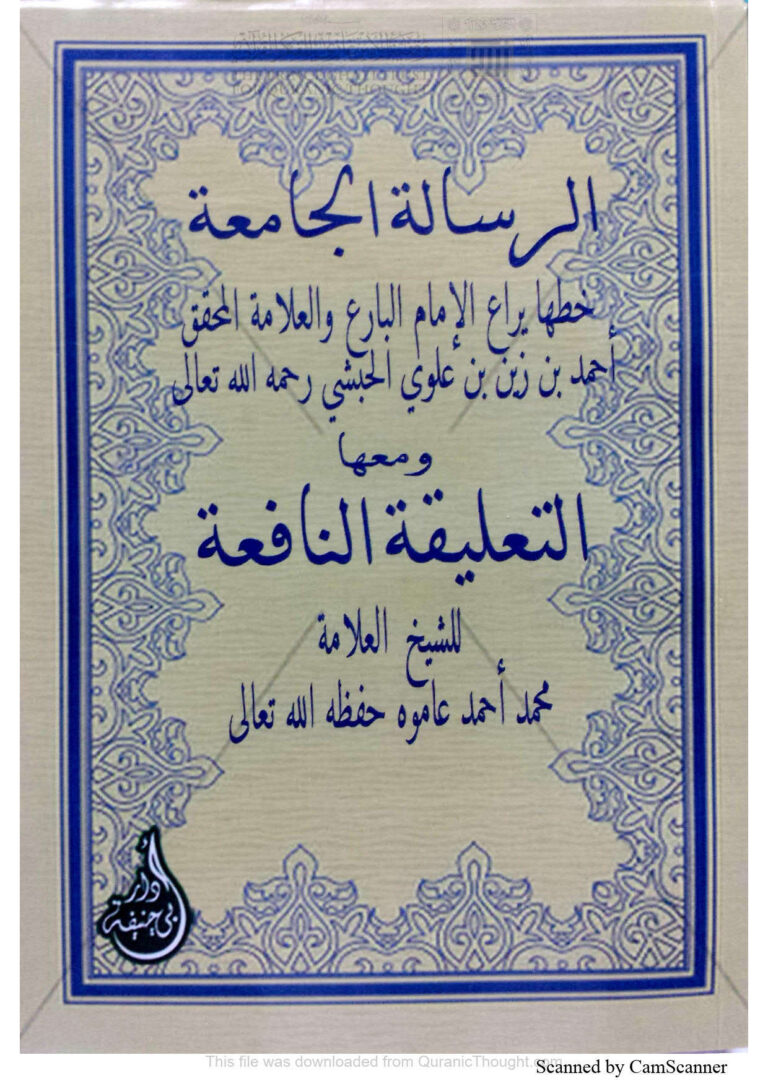 الرسالة الجامعة
خطها يراع الإمام البارع والعلامة المحقق
أحمد بن زين بن علوي الحبشي رحمه الله تعالى
ومعها
التعليقة النافعة
للشيخ العلامة
محمد أحمد عاموه حفظه الله تعالى
دار
أبي حنيفة
This file was downloaded from QuranicThought.com
Scanned by CamScanner